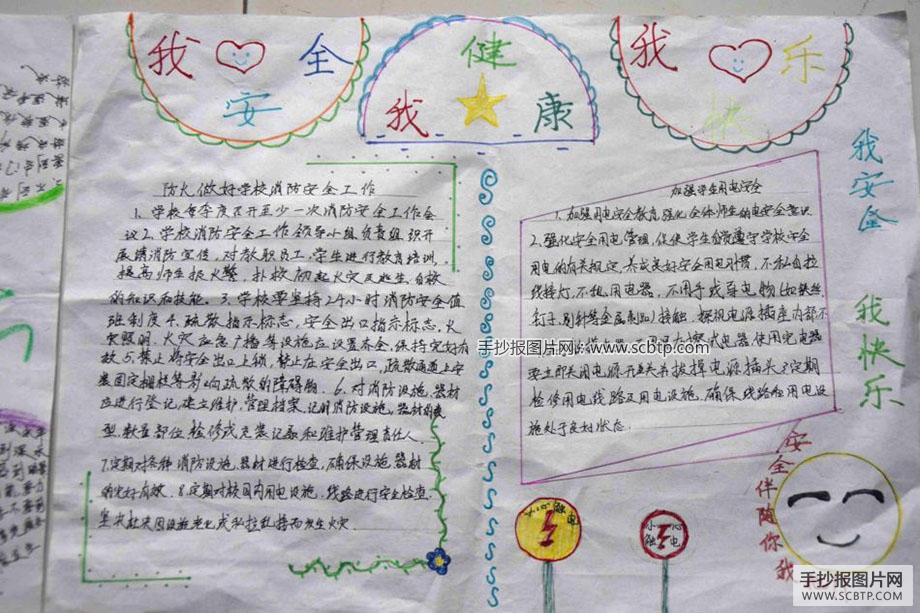 我 全
安
健
我 康
我 乐
快
防火,做好学校消防安全工作
1、学校每季度召开至少一次消防安全工作会
议2、学校消防安全工作领导小组负责组织开
展消防宣传,对教职员工、学生进行教育培训,
提高师生报火警、扑救初起火灾及逃生、自救
的知识和技能。3、学校要坚持24小时消防安全值
班制度4、疏散指示标志,安全出口指示标志,火
灾照明,火灾应急广播等设施应设置齐全,保持完好有
效5、禁止将安全出口上锁,禁止在安全出口,疏散通道上安
装固定栅栏等影响疏散的障碍物。6、对消防设施、器材
应进行登记,建立维护,管理档案,记明消防设施、器材的类
型、数量部位、检修或充装记录和维护管理责任人。
7、定期对各种消防设施、器材进行检查,确保设施、器材
的完好有效、8、定期对校园内用电设施,线路进行安全检查,
坚决杜决因设施老化或私拉乱接而发生火灾
加强学生用电安全
1、加强用电安全教育,强化全体师生的电安全意识
2、强化安全用电管理,促使学生自觉遵守学校安全
用电的有关规定,养成良好安全用电习惯,不私自拉
线接灯,不私用电器,不用手或导电物(如铁丝、
钉子、别针等金属制品)接触、探视电源插座内部不
使用完电器
要立即关闭电源开关并拔掉电源插头3定期
检修用电线路及用电设施,确保线路和用电设
施处于良好状态.
我安全
我快乐
安全伴随你我
小心触电
小心
触电
手抄报图片网:www.scbtp.com
手抄报图片网
WWW.SCBTP.COM